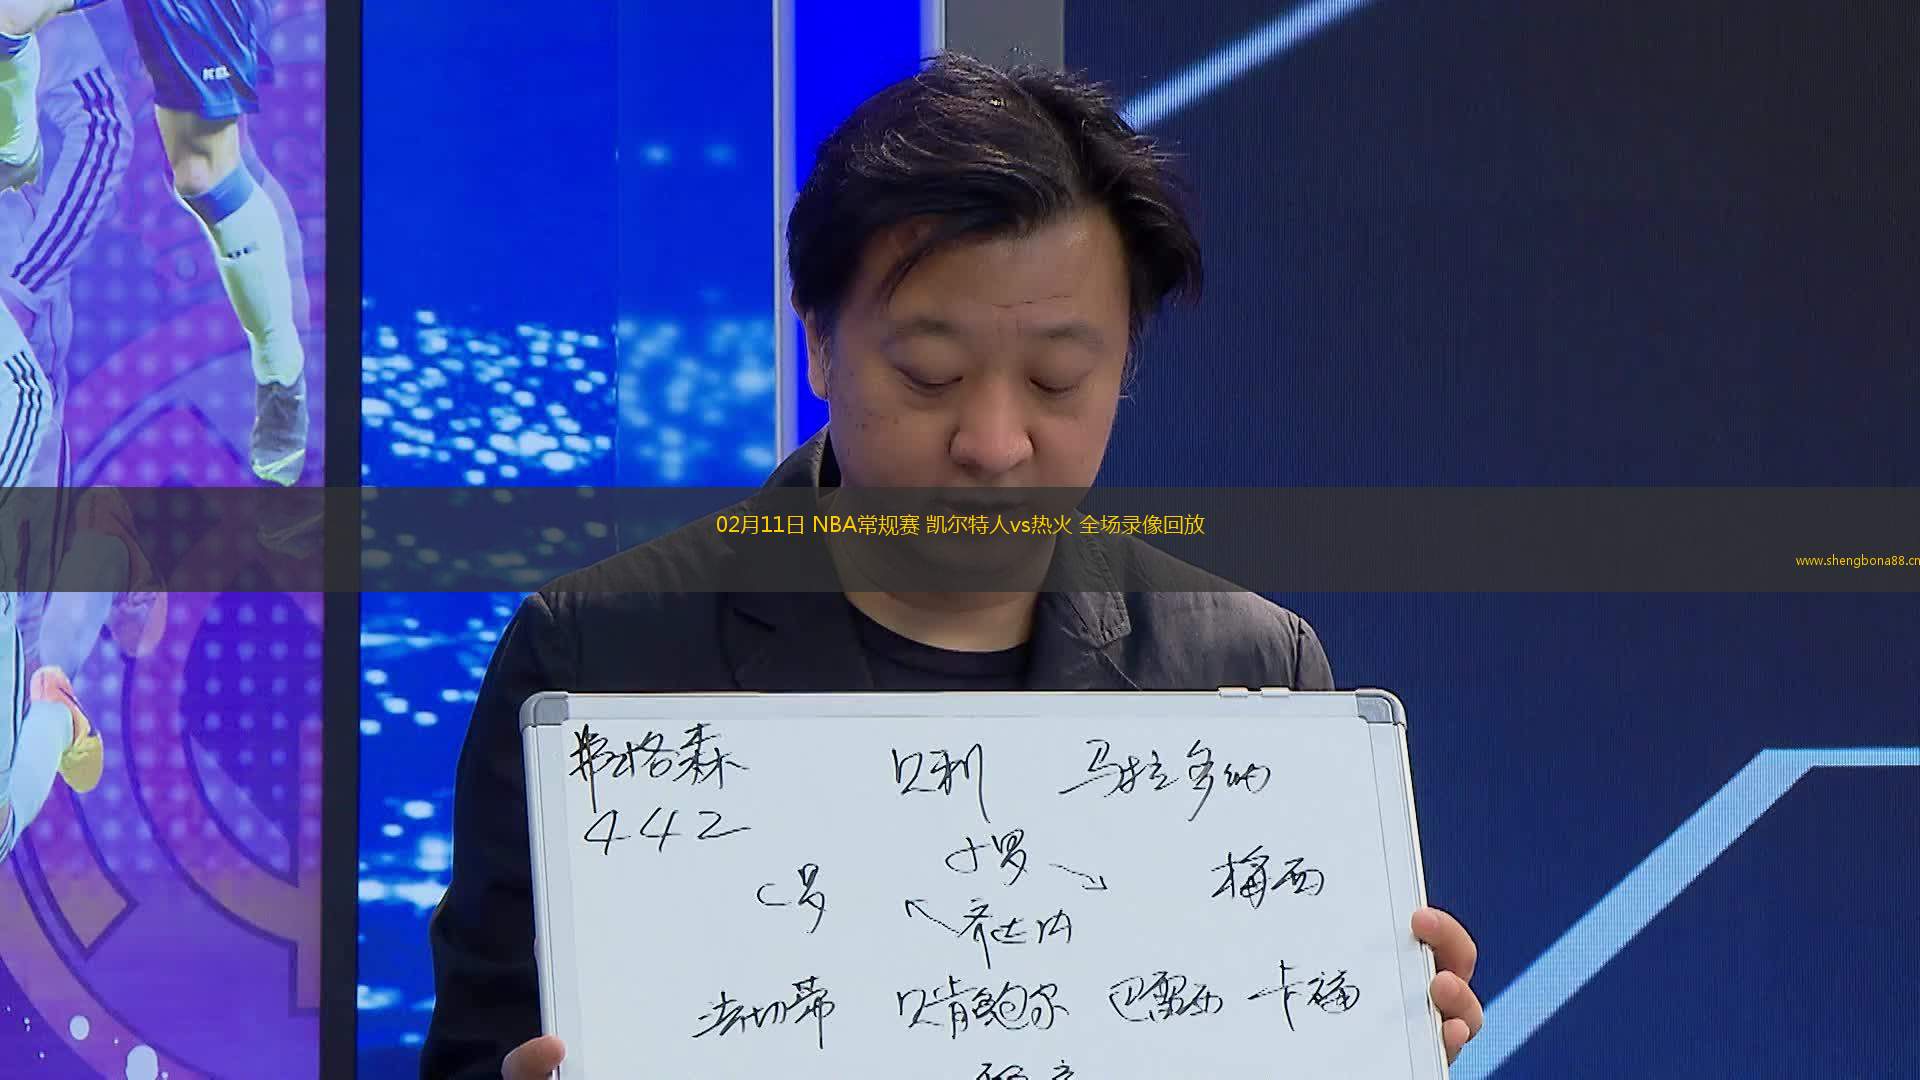 KELME
02月11日 NBA常规赛 凯尔特人vs热火 全场录像回放
www.shengbona88.cn
弗格森 贝利 马拉多纳
442
小罗
C罗 梅西
齐达内
法切蒂 贝肯鲍尔 巴雷西 卡福